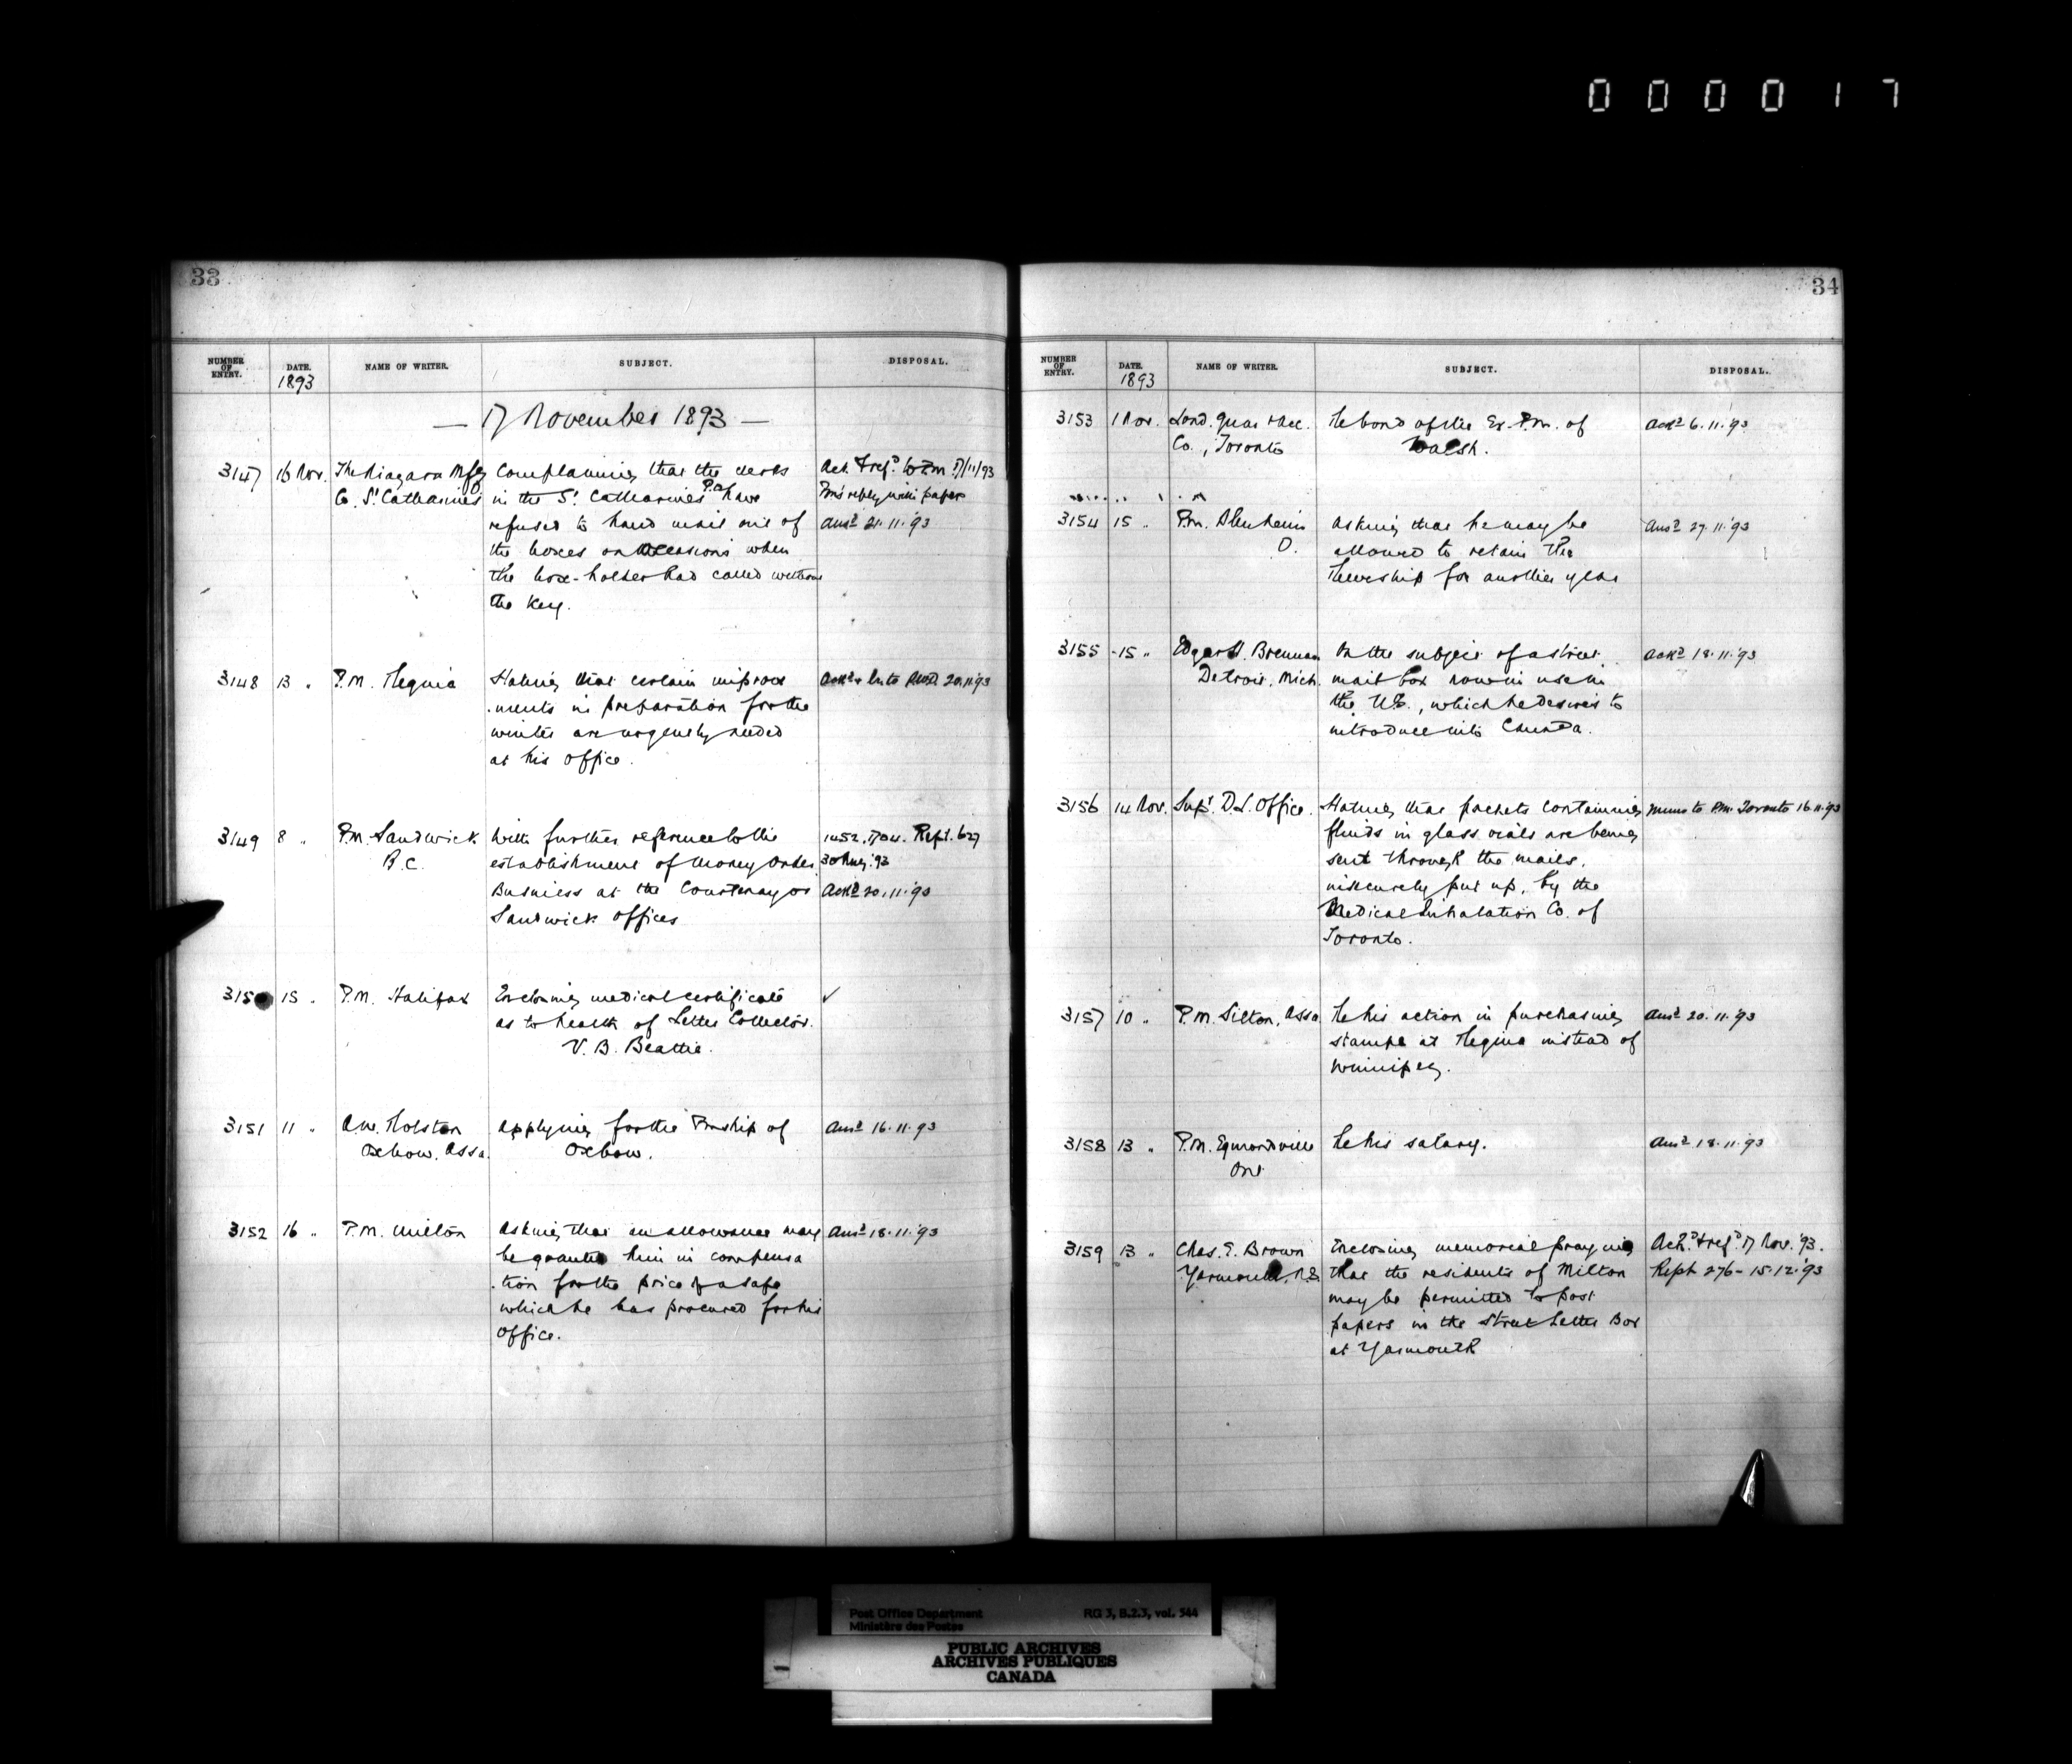 0 0 0 0 1 7
33
NUMBER OF ENTRY. DATE. NAME OF WRITER. SUBJECT. DISPOSAL.
1893
— 17 November 1893 —
3147 16 Nov. The Niagara Mfg Complaining that the clerks Ack. & ref.d to P.M. 17/11/93
Co. St. Catharines in the St. Catharines P.O. have P.M's reply with papers
refused to hand mail out of Ans.d 21.11.'93
the boxes on occasions when
the box-holder had called without
the key.
3148 13 " P.M. Regina Stating that certain improve Ack.d & 20.11.93
-ments in preparation for the
winter are urgently needed
at his office.
3149 8 " P.M. Sandwick With further reference to the 1452. 1704. Rept. 627
B.C. establishment of Money Order 30 Aug. '93
Business at the Courtenay or Ack.d 20.11.'93
Sandwick offices
3150 15 " P.M. Halifax Enclosing medical certificate ✓
as to health of Letter Collector.
V. B. Beattie.
3151 11 " Applying for the Pmship of Ans.d 16.11.93
Oxbow. Assa. Oxbow.
3152 16 " P.M. Milton Asking that an allowance may Ans.d 18.11.'93
be granted him in compensa
-tion for the price of a safe
which he has procured for his
office.
34
NUMBER OF ENTRY. DATE. NAME OF WRITER. SUBJECT. DISPOSAL.
1893
3153 1 Nov. Lond. Guar & Acc. Re bond of the Ex-P.M. of Ack.d 6.11.'93
Co., Toronto Walsh.
3154 15 " P.M. Blenheim Asking that he may be Ans.d 27.11.'93
O. allowed to retain the
for another year
3155 15 " Edgar H. Brennan On the subject of a street Ack.d 18.11.93
Detroit, Mich. mail box now in use in
the U.S., which he desires to
introduce into Canada.
3156 14 Nov. Supt. D.L. Office. Stating that packets containing Memo to P.M. Toronto 16.11.93
fluids in glass vials are being
sent through the mails,
insecurely put up, by the
Medical Inhalation Co. of
Toronto.
3157 10 " P.M. Silton, Assa. Re his action in purchasing Ans.d 20.11.'93
stamps at Regina instead of
Winnipeg.
3158 13 " P.M. Egmondville Re his salary. Ans.d 18.11.'93
Ont
3159 13 " Chas. E. Brown Enclosing memorial praying Ack.d & ref.d 17 Nov. '93.
Yarmouth, N.S. that the residents of Milton Rept 276 - 15.12.'93
may be permitted to post
papers in the Street Letter Box
at Yarmouth
Post Office Department RG 3, B.2.3, vol. 544
Ministère des Postes
PUBLIC ARCHIVES
ARCHIVES PUBLIQUES
CANADA